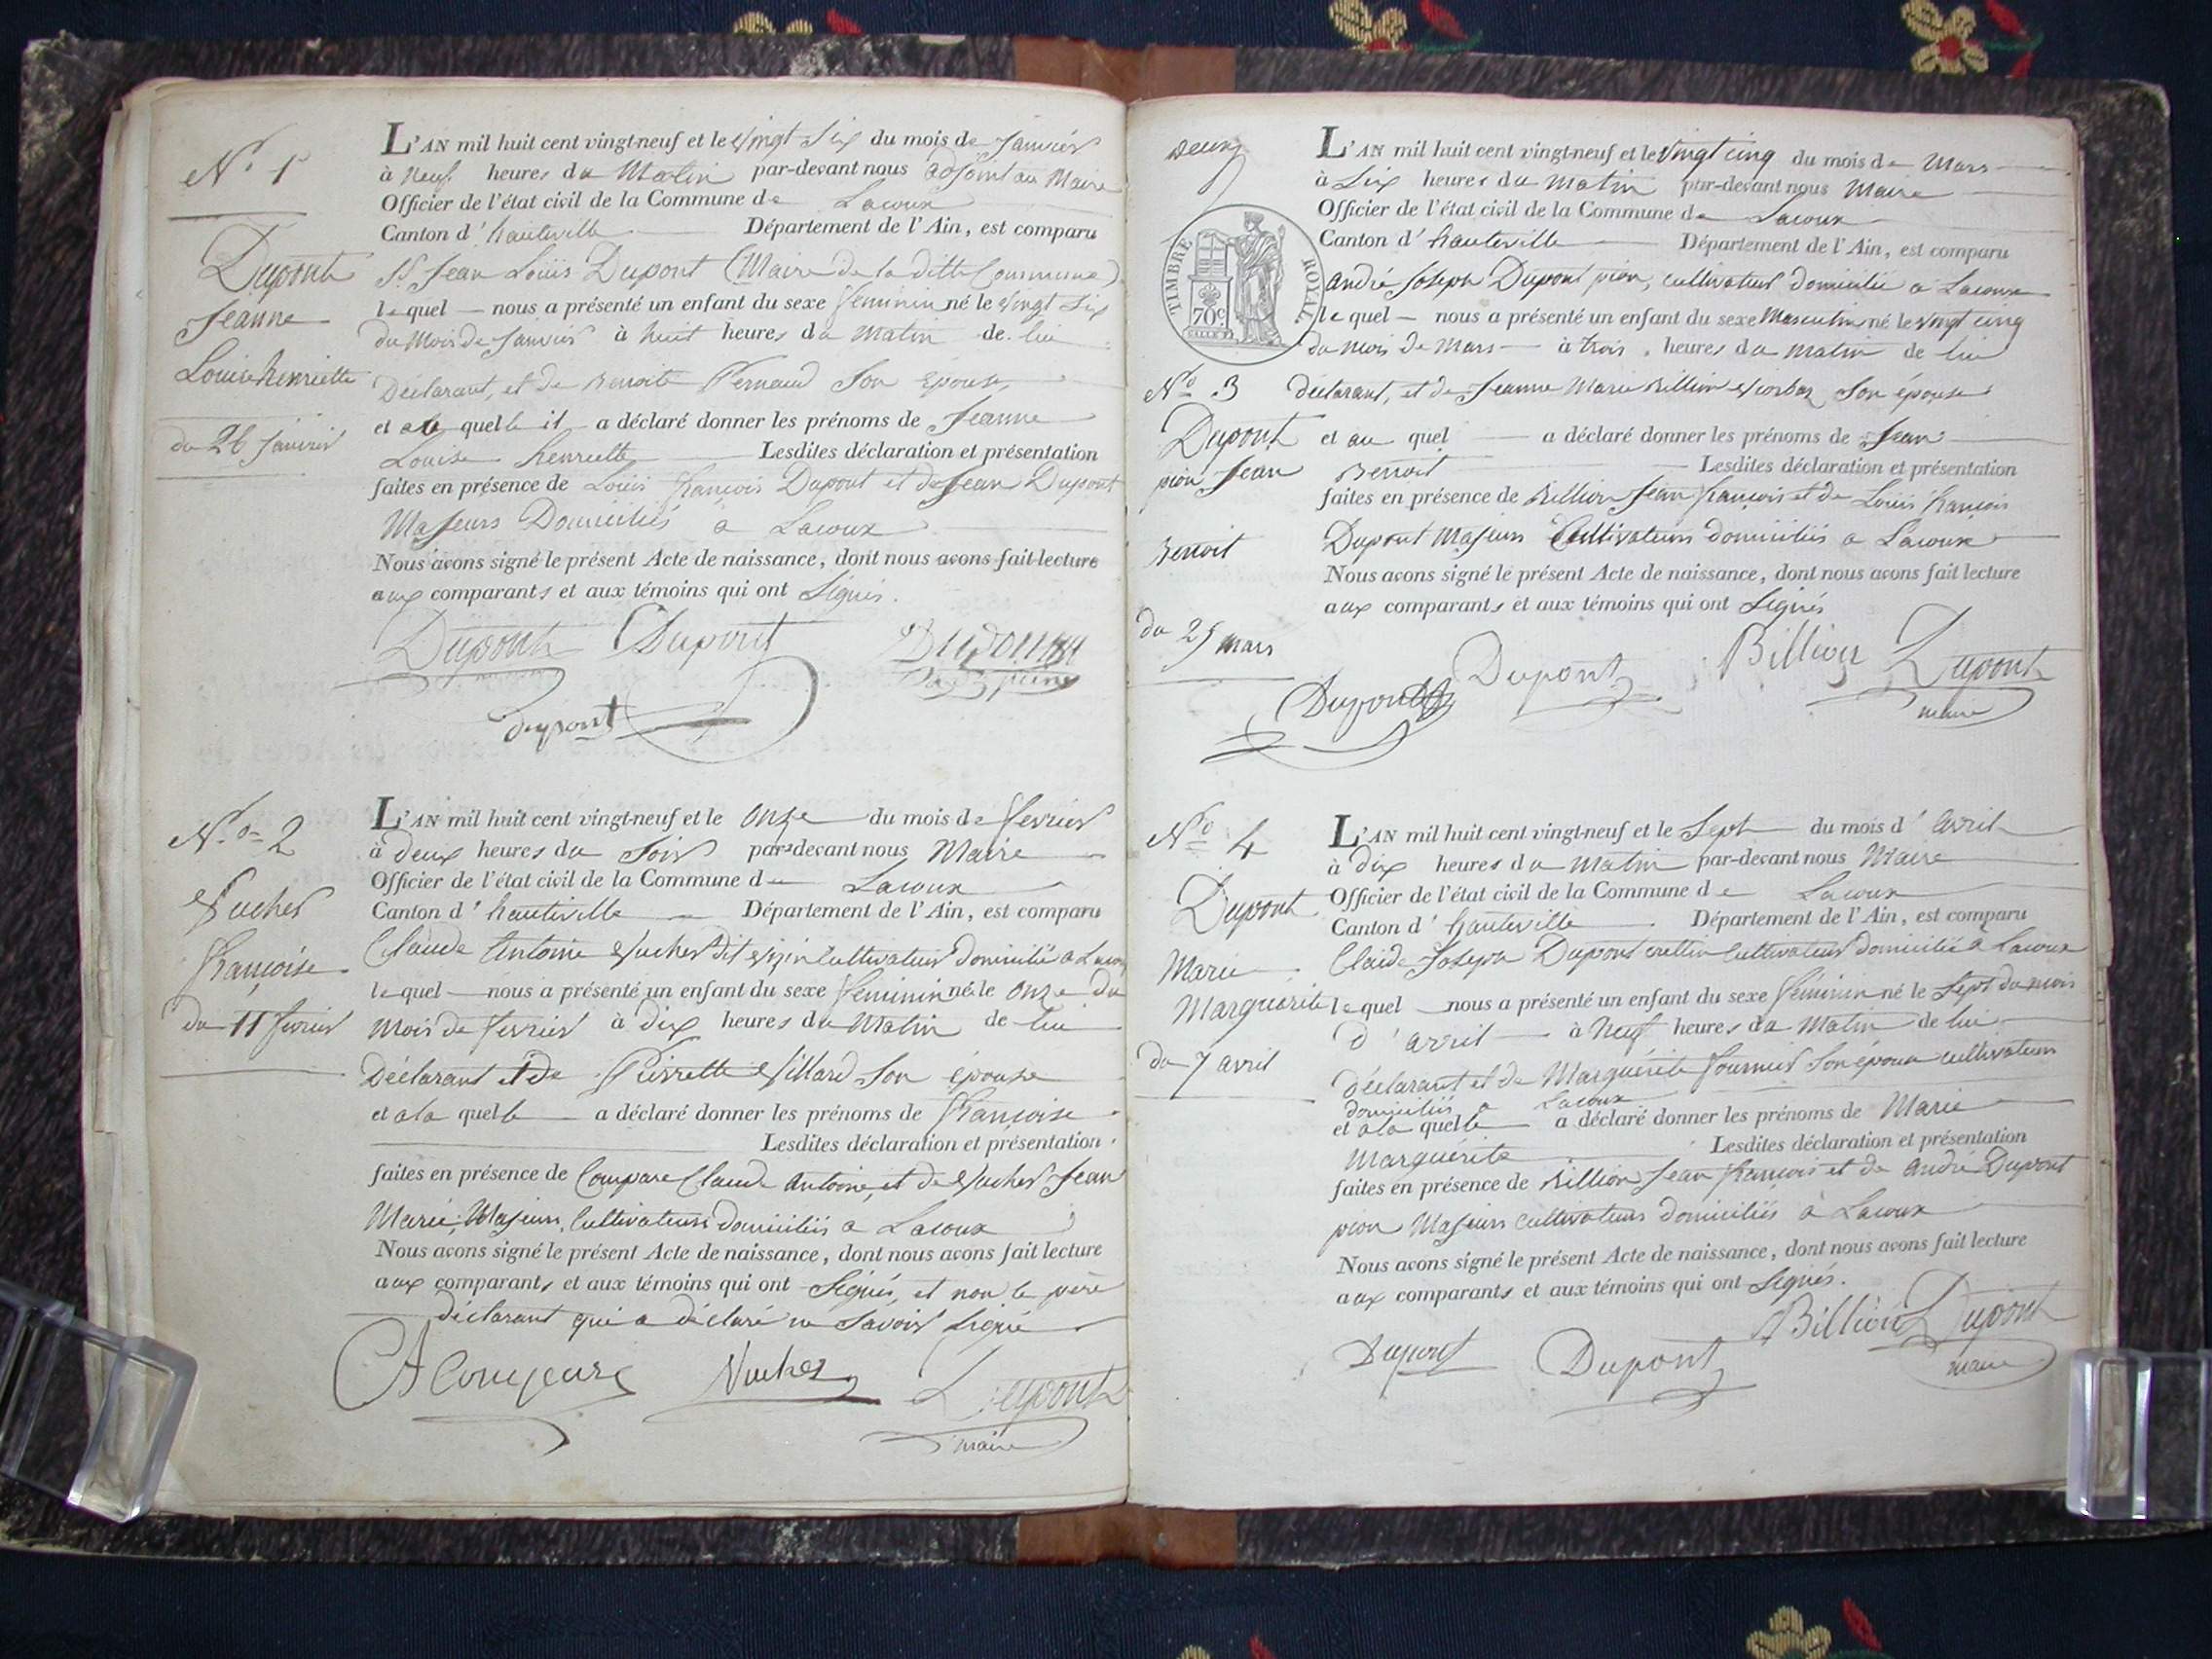 N.o 1
Dupont
Jeanne
Louise henriette
du 26 janvier
L'AN mil huit cent vingt-neuf et le vingt Six du mois de janvier
à neuf heures du Matin par-devant nous adjoint au Maire
Officier de l'état civil de la Commune de Lacoux
Canton d'hauteville Département de l'Ain, est comparu
Sr Jean Louis Dupont (Maire de la ditte Commune)
lequel nous a présenté un enfant du sexe feminin né le vingt Six
du Mois de janvier à huit heures du matin de lui
Déclarant, et de Benoite Pernaud Son épouse,
et a la quelle il a déclaré donner les prénoms de Jeanne
Louise henriette Lesdites déclaration et présentation
faites en présence de Louis françois Dupont et de Jean Dupont
Majeurs Domiciliés a Lacoux
Nous avons signé le présent Acte de naissance, dont nous avons fait lecture
aux comparants et aux témoins qui ont Signés.
Dupont Dupont
dupont
N.o 2
Vucher
françoise
du 11 fevrier
L'AN mil huit cent vingt-neuf et le onze du mois de fevrier
à deux heures du Soir par-devant nous Maire
Officier de l'état civil de la Commune de Lacoux
Canton d'hauteville Département de l'Ain, est comparu
Claude Antoine Vucher dit Cultivateur domicilié a Lacoux
lequel nous a présenté un enfant du sexe feminin né le onze du
mois de fevrier à dix heures du Matin de lui
Déclarant et de Pierrette Villard Son épouse
et a la quelle a déclaré donner les prénoms de françoise
Lesdites déclaration et présentation
faites en présence de Claude Antoine, et de Vucher Jean
Marie, Majeurs, Cultivateurs domiciliés a Lacoux
Nous avons signé le présent Acte de naissance, dont nous avons fait lecture
aux comparants et aux témoins qui ont Signés, et non le père
déclarant qui a déclaré ne Savoir Signé
Vucher Dupont
maire
deux
TIMBRE ROYAL
70c
N.o 3
Dupont
pion Jean
Benoit
du 25 mars
L'AN mil huit cent vingt-neuf et le vingt cinq du mois de Mars
à Six heures du matin par-devant nous Maire
Officier de l'état civil de la Commune de Lacoux
Canton d'hauteville Département de l'Ain, est comparu
andré Joseph Dupont pion, cultivateur domicilié a Lacoux
lequel nous a présenté un enfant du sexe Masculin né le vingt cinq
du mois de mars à trois heures du matin de lui
déclarant, et de Jeanne Marie Billion Son épouse
et au quel a déclaré donner les prénoms de Jean
Benoit Lesdites déclaration et présentation
faites en présence de Billion Jean françois et de Louis françois
Dupont Majeurs Cultivateurs domiciliés a Lacoux
Nous avons signé le présent Acte de naissance, dont nous avons fait lecture
aux comparants et aux témoins qui ont Signés
Dupont Dupont Billion Dupont
maire
N.o 4
Dupont
Marie
Marguerite
du 7 avril
L'AN mil huit cent vingt-neuf et le Sept du mois d'avril
à dix heures du matin par-devant nous Maire
Officier de l'état civil de la Commune de Lacoux
Canton d'hauteville Département de l'Ain, est comparu
Claude Joseph Dupont cultivateur domicilié a Lacoux
lequel nous a présenté un enfant du sexe féminin né le Sept du mois
d'avril à neuf heures du Matin de lui
déclarant et de Marguérite fournier Son épouse cultivateurs
domiciliés a Lacoux
et a la quelle a déclaré donner les prénoms de Marie
Marguérite Lesdites déclaration et présentation
faites en présence de Billion Jean françois et de andré Dupont
pion Majeurs cultivateurs domiciliés à Lacoux
Nous avons signé le présent Acte de naissance, dont nous avons fait lecture
aux comparants et aux témoins qui ont Signés.
Dupont Dupont Billion Dupont
maire